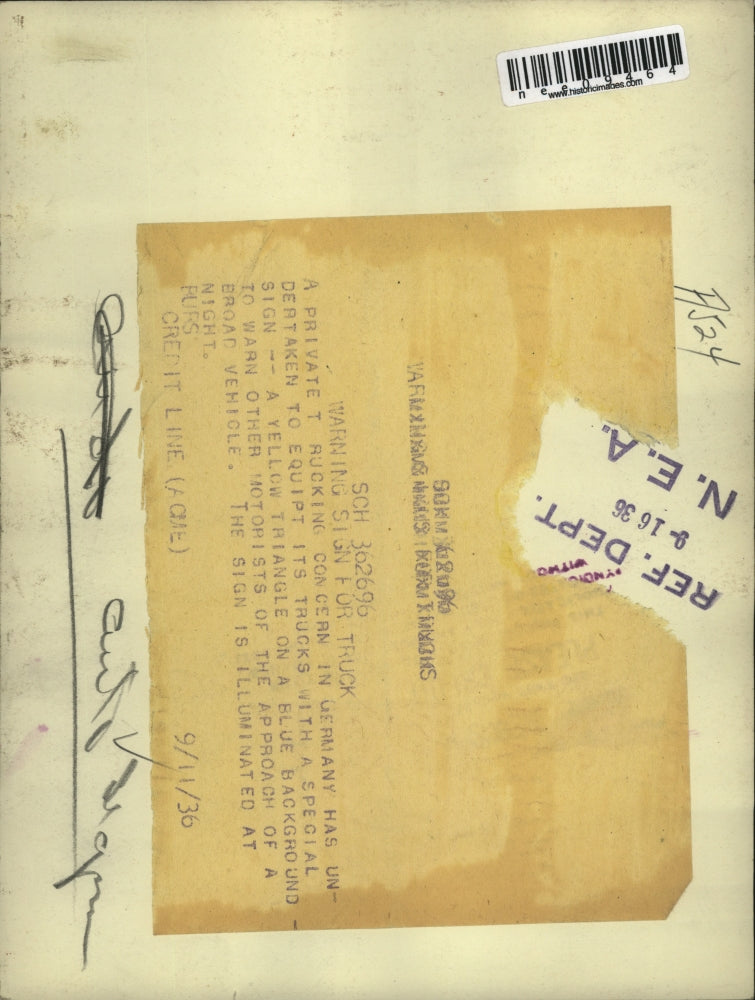 nee09464
www.historicimages.com
7524
N.E.A.
9-16 36
REF. DEPT.
SCH 362696
WARNING SIGN FOR TRUCK
A PRIVATE T RUCKING CONCERN IN GERMANY HAS UN-
DERTAKEN TO EQUIPT ITS TRUCKS WITH A SPECIAL
SIGN -- A YELLOW TRIANGLE ON A BLUE BACKGROUND -
TO WARN OTHER MOTORISTS OF THE APPROACH OF A
BROAD VEHICLE. THE SIGN IS ILLUMINATED AT
NIGHT.
CREDIT LINE (ACME) 9/11/36